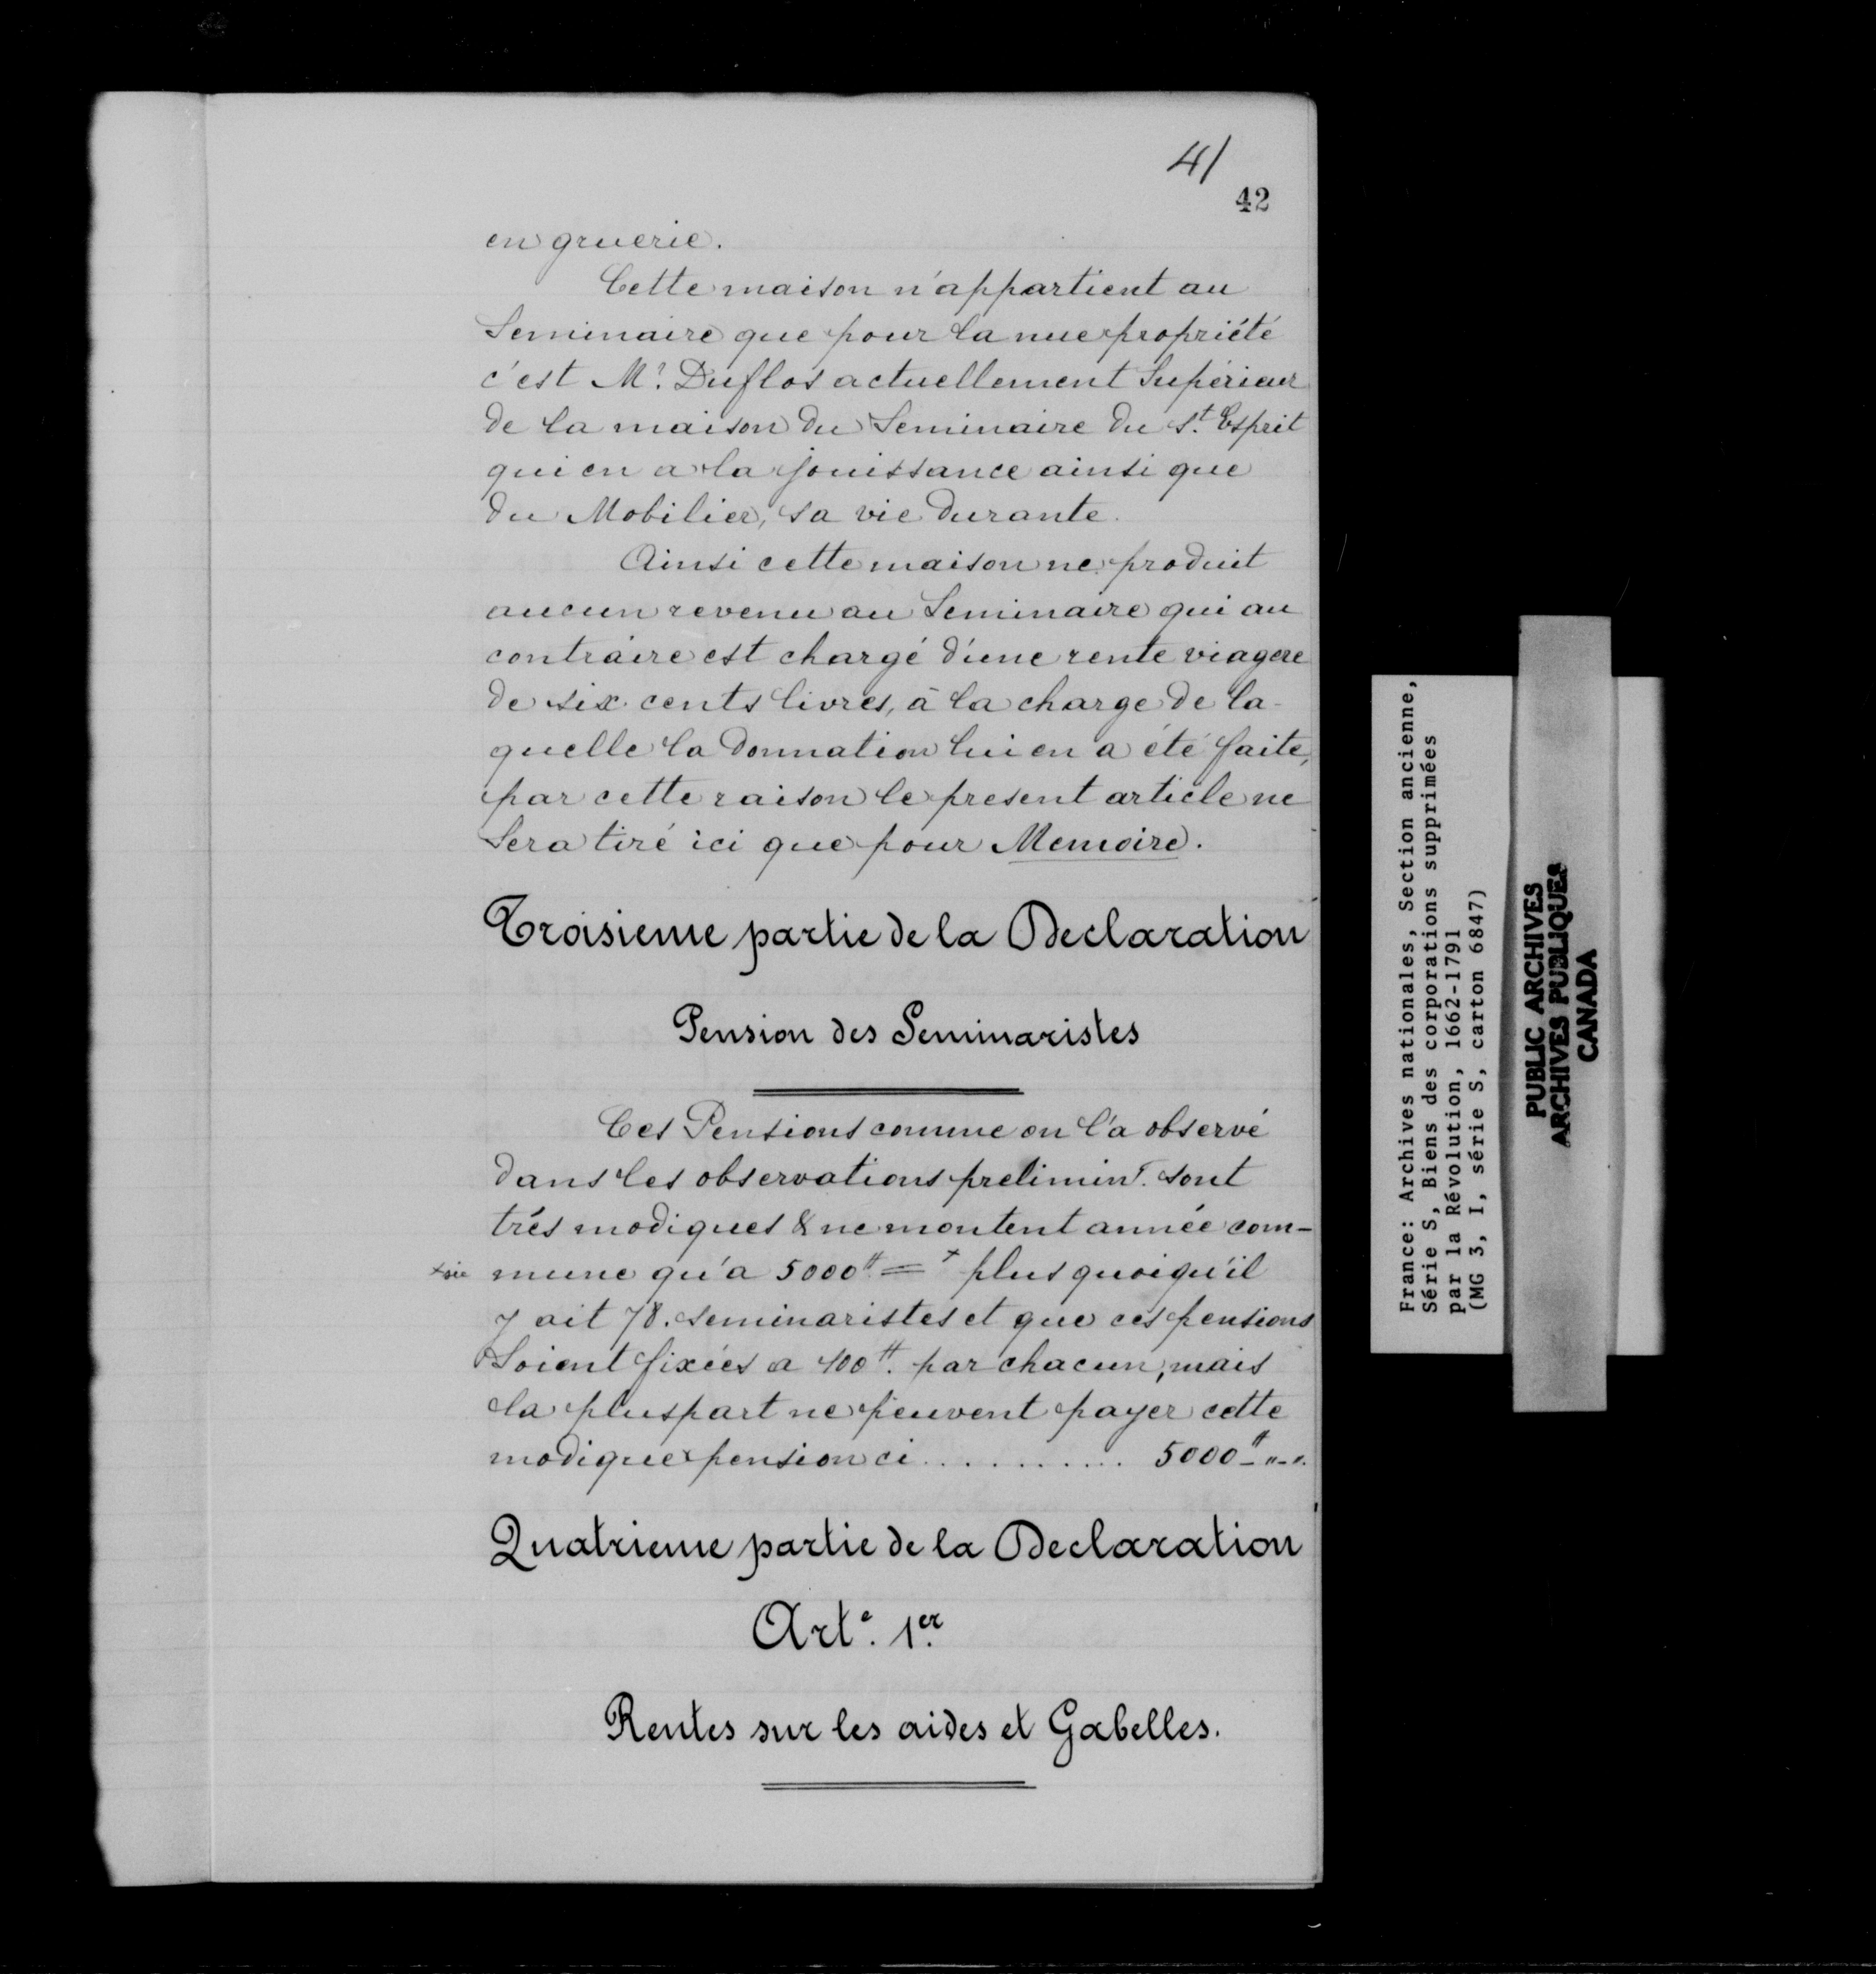 41
42
en gruerie.
Cette maison n'appartient au
Seminaire que pour la nue propriété
c'est Mr. Duflos actuellement Supérieur
de la maison du Seminaire du St. Esprit
qui en a la jouissance ainsi que
du Mobilier, sa vie durante.
Ainsi cette maison ne produit
aucun revenu au Seminaire qui au
contraire est chargé d'une rente viagere
de six cents livres, à la charge de la-
quelle la donnation lui en a été faite,
par cette raison le present article ne
Sera tiré ici que pour Memoire.
Troisieme partie de la Declaration
Pension des Seminaristes
Ces Pensions comme on l'a observé
dans les observations prelimin.r sont
trés modiques & ne montent année com-
mune qu'a 5000# = + plus quoiqu'il
y ait 78. seminaristes et que ces pensions
Soient fixées a 100#. par chacun, mais
la pluspart ne peuvent payer cette
modique pension ci........... 5000#-"-".
Quatrieme partie de la Declaration
Art.e 1.er
Rentes sur les aides et Gabelles.
France: Archives nationales, Section ancienne,
Série S, Biens des corporations supprimées
par la Révolution, 1662-1791
(MG 3, I, série S, carton 6847)
PUBLIC ARCHIVES
ARCHIVES PUBLIQUES
CANADA